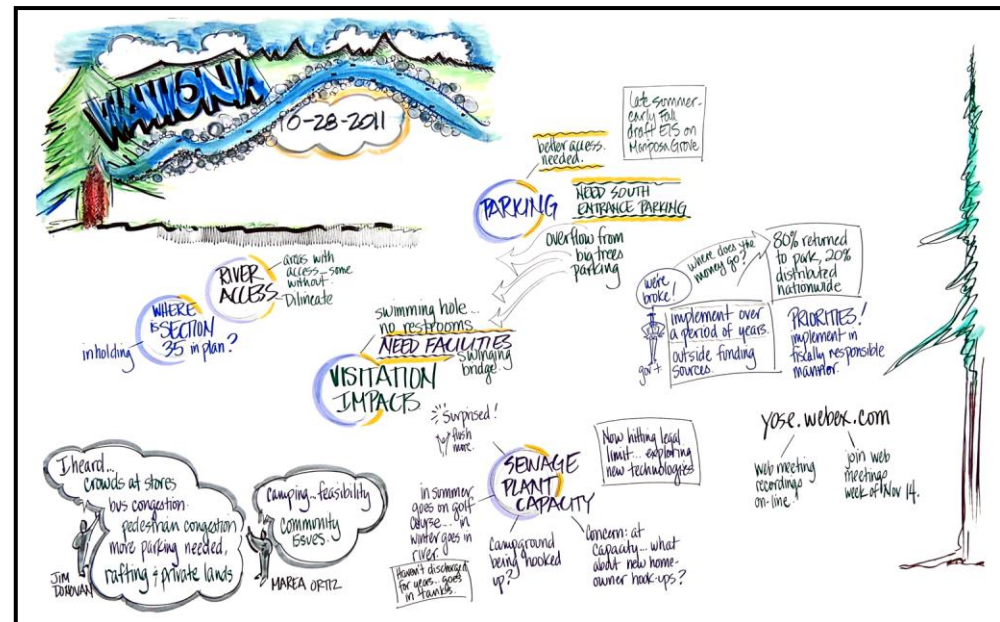 WAWONA
10-28-2011
late summer-
early Fall
draft EIS on
Mariposa Grove
better access
needed.
PARKING
NEED SOUTH
ENTRANCE PARKING
overflow from
big trees
parking
RIVER
ACCESS
areas with
access - some
without.
Dilineate
WHERE
is SECTION
35 in plan?
inholding
swimming hole...
no restrooms
NEED FACILITIES
swinging
bridge.
VISITATION
IMPACTS
we're
broke!
gov't
where does the
money go?
80% returned
to park, 20%
distributed
nationwide
implement over
a period of years.
outside funding
sources.
PRIORITIES!
implement in
fiscally responsible
manner.
Surprised!
flush
more.
SEWAGE
PLANT
CAPACITY
Now hitting legal
limit... exploring
new technologies
in summer
goes on golf
course... in
winter goes in
river.
Haven't discharged
for years... goes
in tanks.
Campground
being hooked
up?
Concern: at
capacity... what
about new home-
owner hook-ups?
yose.webex.com
web meeting
recordings
on-line.
join web
meetings
week of Nov 14.
I heard...
crowds at stores
bus congestion
pedestrian congestion
more parking needed,
rafting & private lands
JIM
DONOVAN
camping...feasibility
community
issues.
MAREA ORTIZ